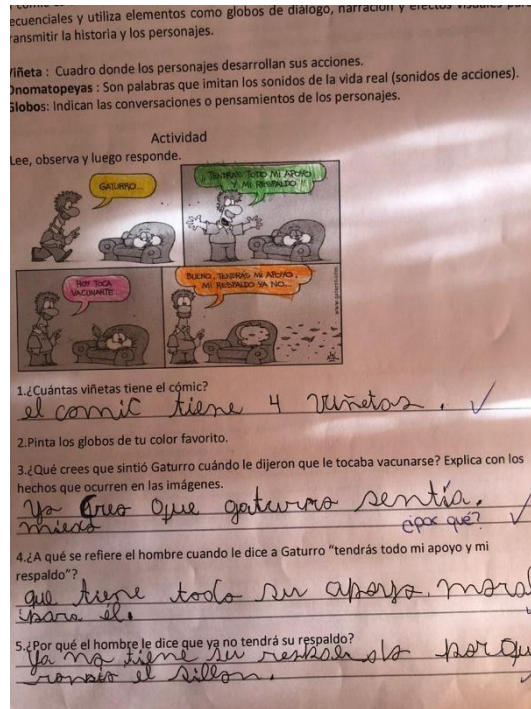 ecuenciales y utiliza elementos como globos de diálogo, narración y efectos visuales
ransmitir la historia y los personajes.
Viñeta : Cuadro donde los personajes desarrollan sus acciones.
Onomatopeyas : Son palabras que imitan los sonidos de la vida real (sonidos de acciones).
Globos: Indican las conversaciones o pensamientos de los personajes.
Actividad
Lee, observa y luego responde.
GATURRO...
¡¡ TENDRÁS TODO MI APOYO
Y MI RESPALDO !!
HOY TOCA
VACUNARTE
BUENO, TENDRÁS MI APOYO,
MI RESPALDO YA NO...
1.¿Cuántas viñetas tiene el cómic?
el comic tiene 4 viñetas .
2.Pinta los globos de tu color favorito.
3.¿Qué crees que sintió Gaturro cuándo le dijeron que le tocaba vacunarse? Explica con los
hechos que ocurren en las imágenes.
yo creo que gaturro sentía.
miedo ¿por qué?
4.¿A qué se refiere el hombre cuando le dice a Gaturro "tendrás todo mi apoyo y mi
respaldo"?
que tiene todo su apoyo. moral
para él.
5.¿Por qué el hombre le dice que ya no tendrá su respaldo?
ya no tiene su porqu
el sillon.